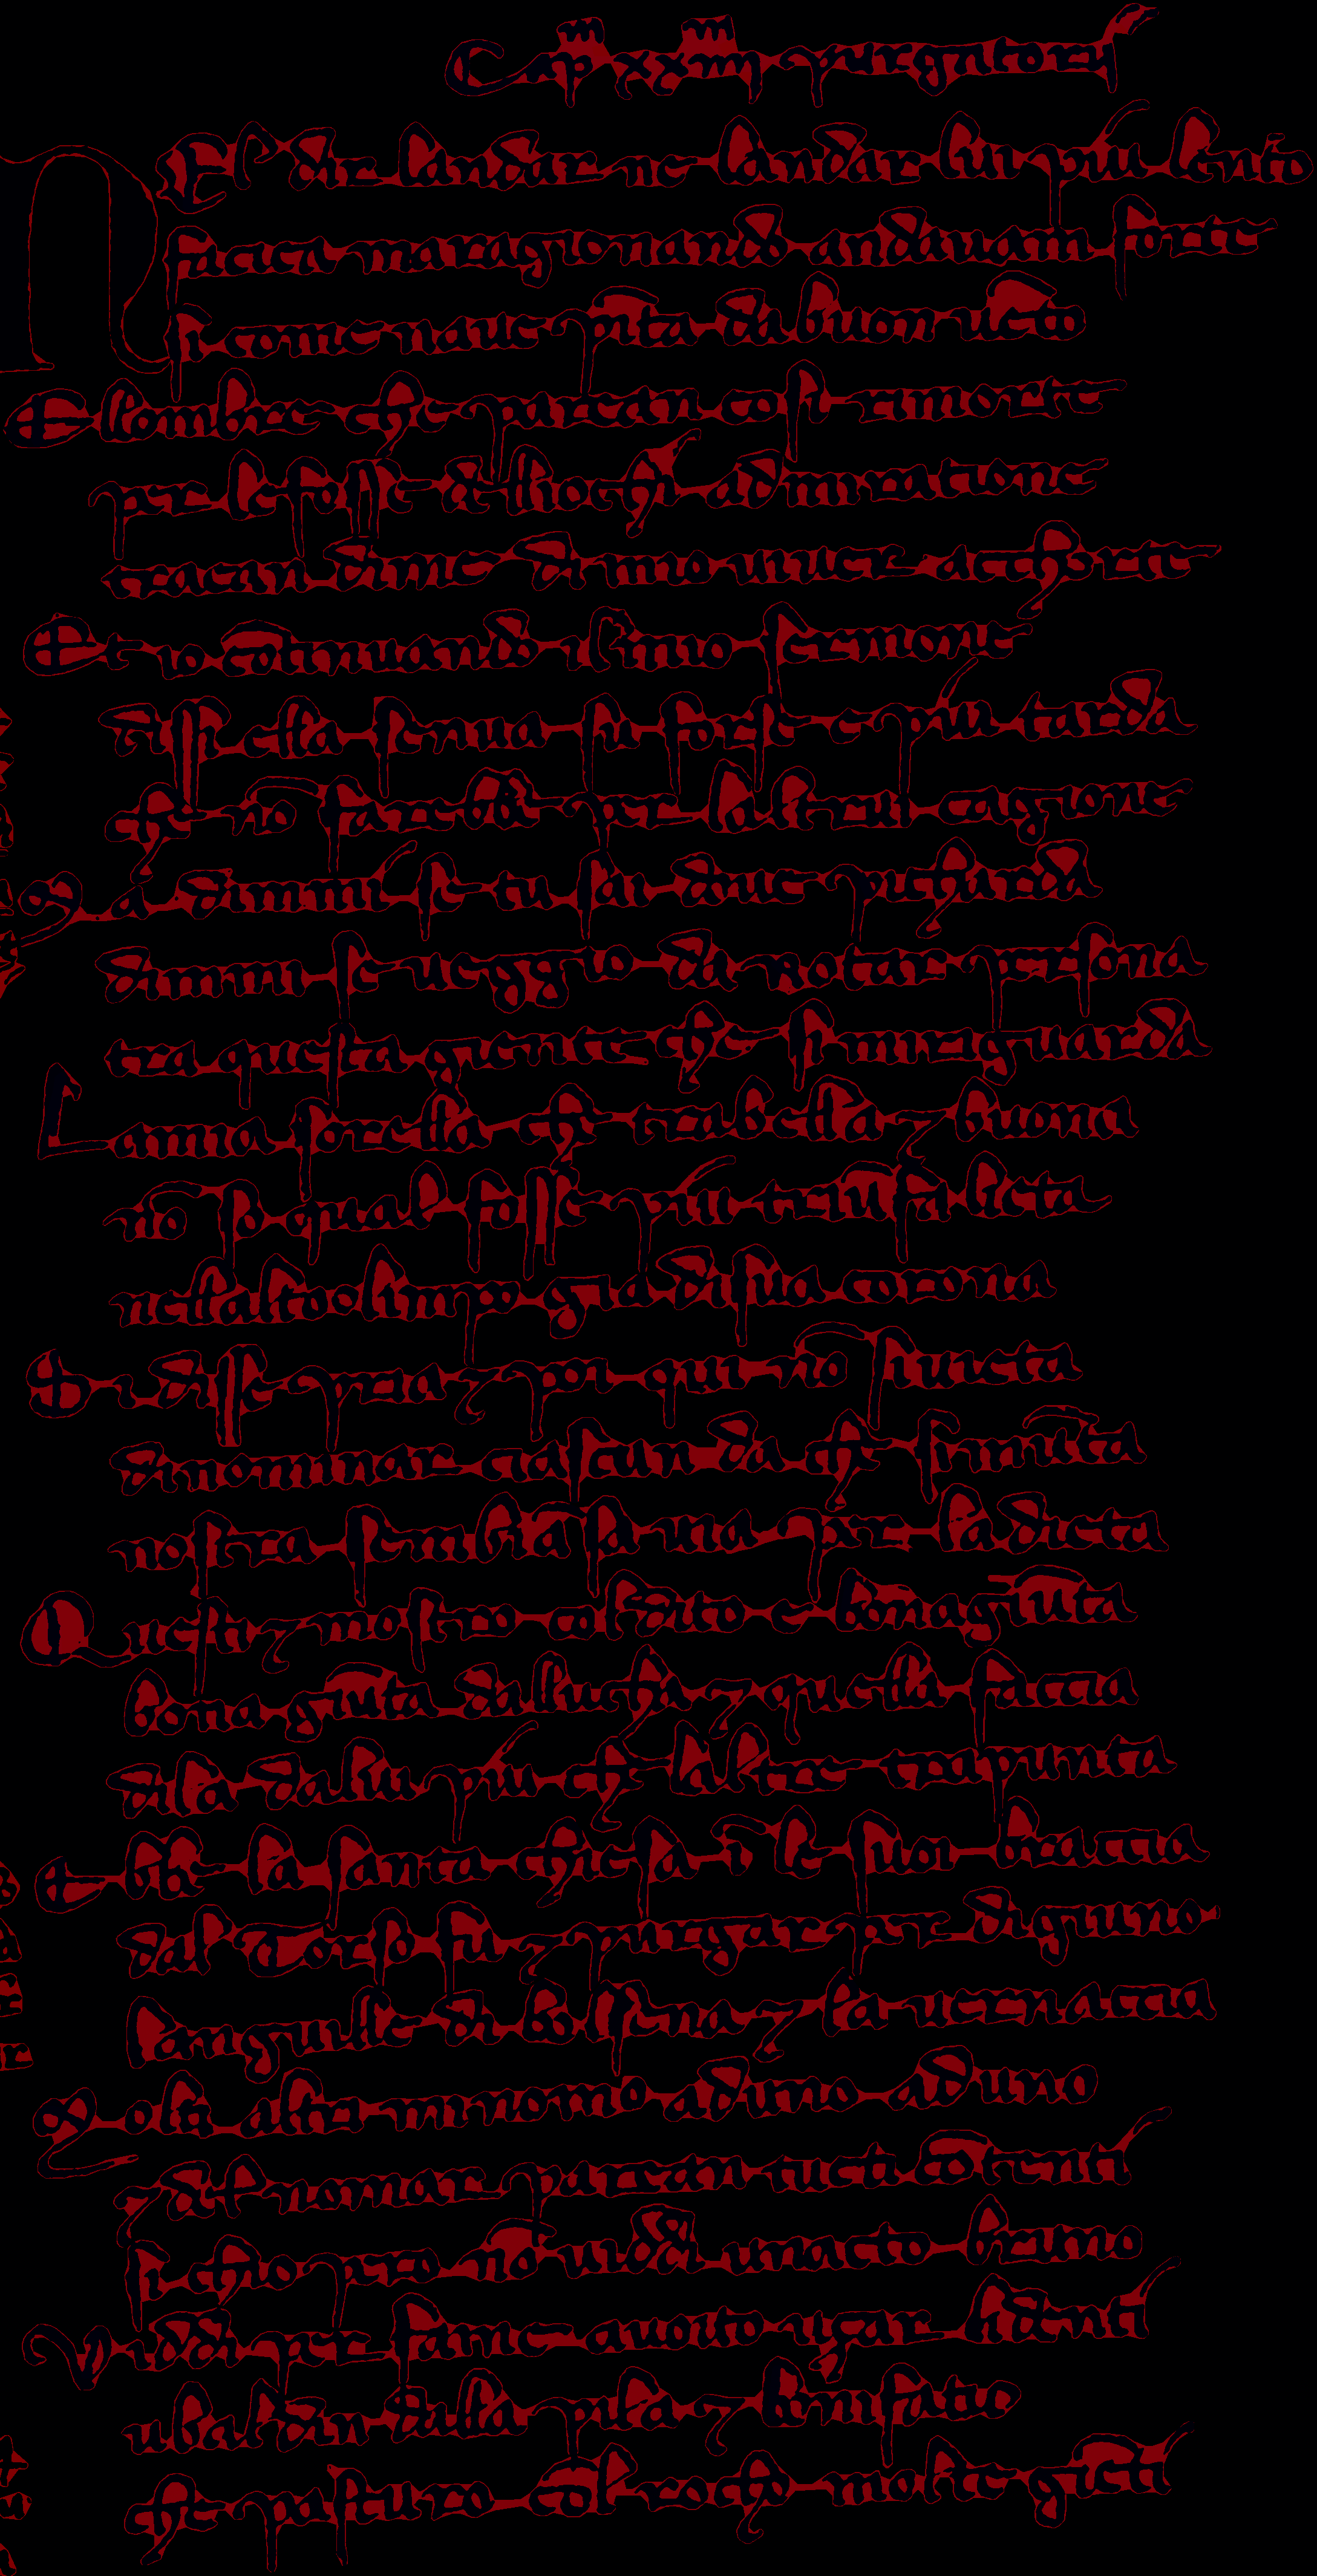 Cap̅ xxiiij̅ purgatorij
NEl dir landar ne landar lui piu lento
faciea maragionando andauam forte
si come naue pi̅ta da buon ue̅to
Ellombre che parean cosi rimorte
per le fosse de lliochi admiratione
traean dime di mio uiuer acchorte
Et io co̅tinuando il mio sermone
dissi ella senua su forse e piu tarda
che no̅ farebbe per laltrui cagione
Ma dimmi se tu sai doue picharda
dimmi se ueggio da notar persona
tra questa giente che si miriguarda
Lamia sorella che trabella ⁊ buona
no̅ so qual fosse piu triu̅fa lieta
nellalto olimpo gia disua corona
Si disse pria ⁊ poi qui no̅ siuieta
dinominar ciascun da che simu̅ta
nostra sembia̅sa uia per la dieta
Questi ⁊ mostro col dito e bonagiu̅ta
bona giu̅ta dallucha ⁊ quella faccia
dila dalui piu che laltre trapunta
Ebbe la santa chiesa i̅ le suoi braccia
dal Torso fu ⁊ purgar per digiuno
languille di bolsena ⁊ la uernaccia
Molti altri minomo aduno aduno
⁊ del nomar parean tucti co̅tenti
si chio pero no̅ uiddi unacto bruno
Viddi per fame auoito uçar lidenti
ubaldin dalla pila ⁊ bonifatio
che pasturo col rocho molte gie̅ti